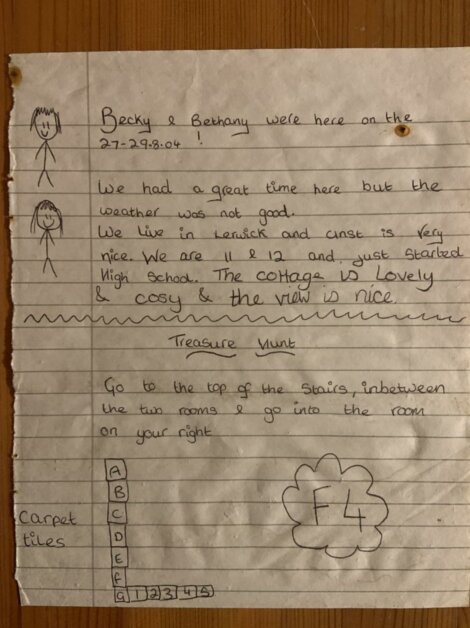 Becky & Bethany were here on the
27-29.8.04 !
We had a great time here but the
weather was not good.
We live in Lerwick and unst is very
nice. We are 11 & 12 and just started
High School. The cottage is Lovely
& cosy & the view is nice.
Treasure Hunt
Go to the top of the stairs, inbetween
the two rooms & go into the room
on your right
A
B
C
D
E
F
G 1 2 3 4 5
Carpet
tiles
F4